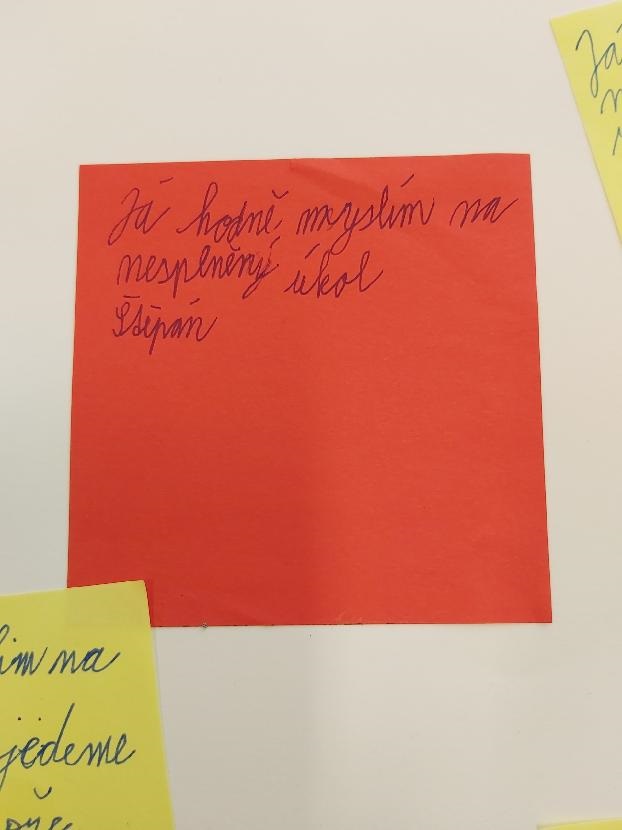 Já hodně myslím na
nesplněný úkol
Štěpán
Já
lim na
jedeme